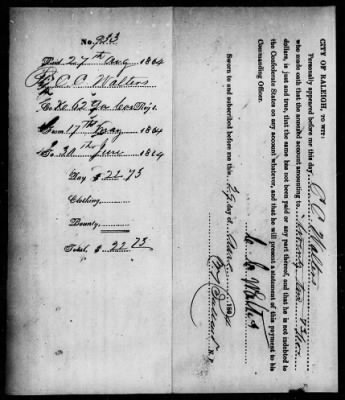 No. 923
Paid 27th Aug 1864
C. C. Walters
Co. K. 62 Ga Cav Reg't.
From 17th 1864
To 30th June 1864
Pay $ 22 73
Clothing,
Bounty,
Total, $ 22 73
CITY OF RALEIGH, TO WIT:
Personally appeared before me this day, C. C. Walters
who made oath that the annexed account amounting to twenty two 73/100
dollars, is just and true, that the same has not been paid or any part thereof, and that he is not indebted to
the Confederate States on any account whatever, and that he will present a statement of this payment to his
Commanding Officer.
C. C. Walters
Sworn to and subscribed before me this 29 day of 186